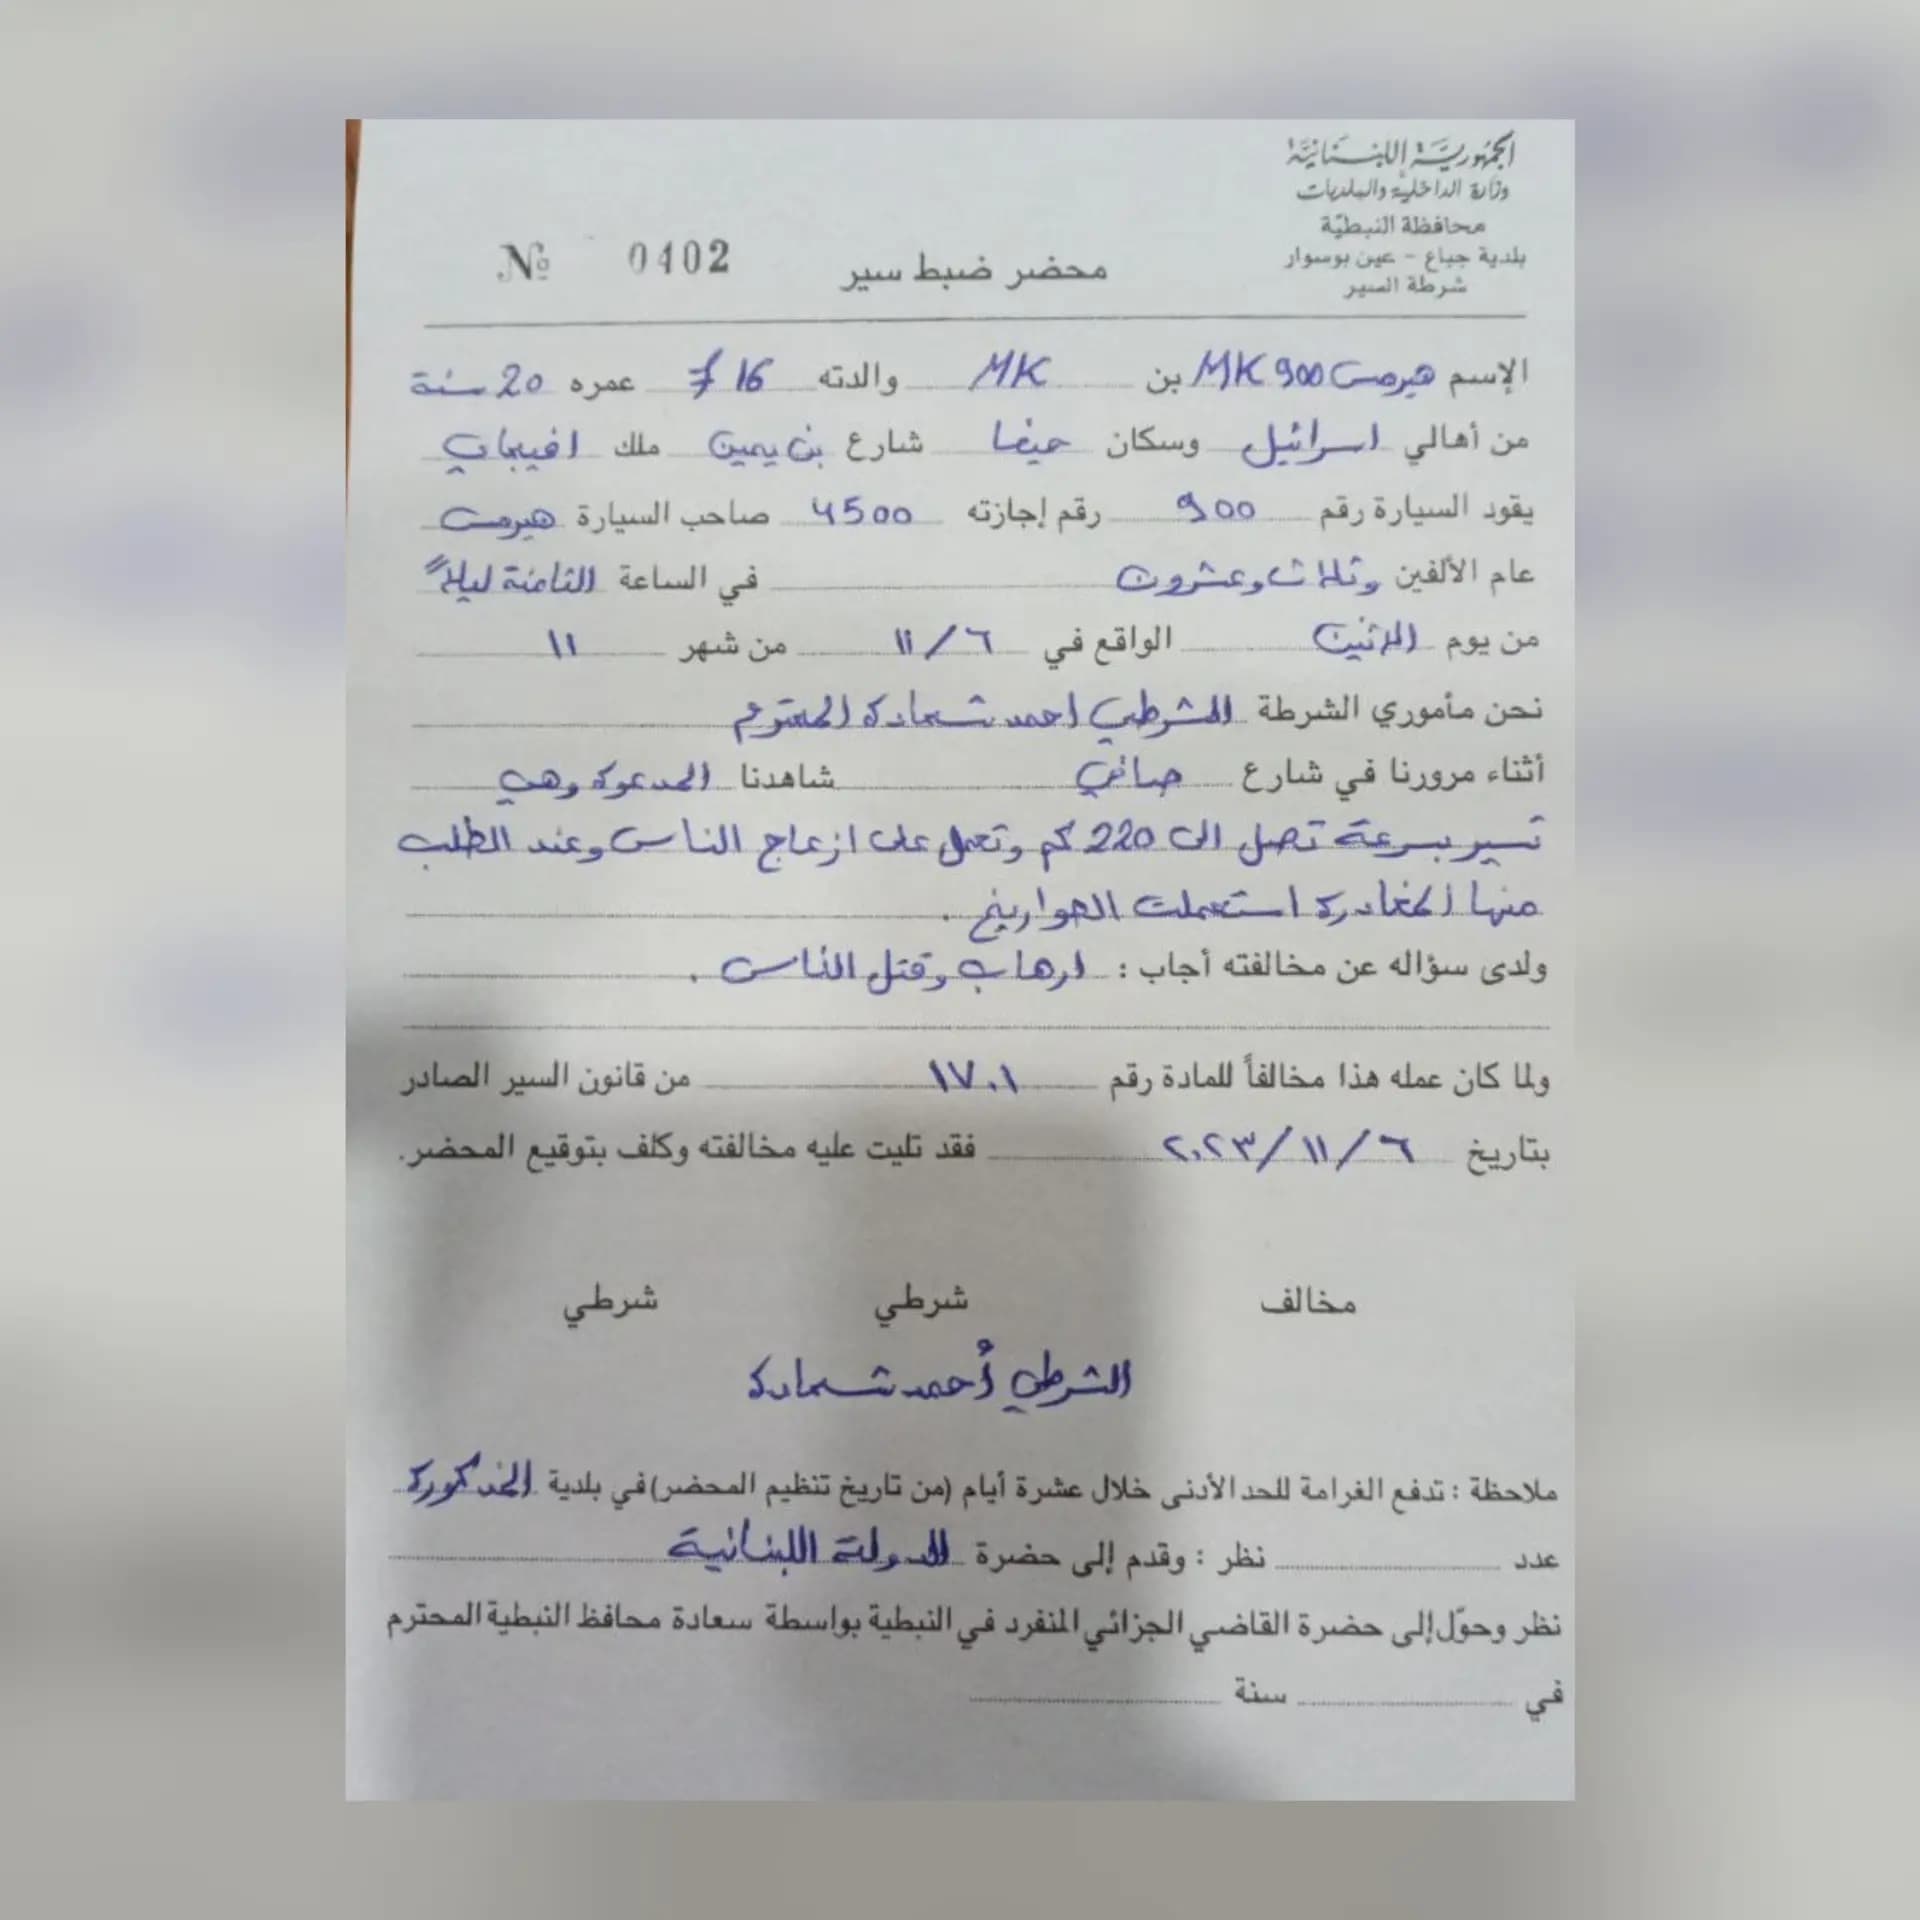 الجمهورية اللبنانية
وزارة الداخلية والبلديات
محافظة النبطيّة
بلدية جباع - عين بوسوار
شرطة السير
محضر ضبط سير
№ 0402
الإسم هيرمس MK 900 بن MK والدته F 16 عمره 20 سنة
من أهالي اسرائيل وسكان حيفا شارع بن يمين ملك افيخاي
يقود السيارة رقم 900 رقم إجازته 4500 صاحب السيارة هيرمس
عام الألفين وثلاث وعشرون في الساعة الثامنة ليلاً
من يوم الاثنين الواقع في ٦/١١ من شهر ١١
نحن مأموري الشرطة الشرطي احمد شحادة المحترم
أثناء مرورنا في شارع صافي شاهدنا المدعوة وهي
تسير بسرعة تصل الى 220 كم وتعمل على ازعاج الناس وعند الطلب
منها المغادرة استعملت الصواريخ .
ولدى سؤاله عن مخالفته أجاب : ارهاب وقتل الناس .
ولما كان عمله هذا مخالفاً للمادة رقم ١٧٠١ من قانون السير الصادر
بتاريخ ٦/١١/٢٠٢٣ فقد تليت عليه مخالفته وكلف بتوقيع المحضر.
مخالف شرطي شرطي
الشرطي أحمد شحادة
ملاحظة : تدفع الغرامة للحد الأدنى خلال عشرة أيام (من تاريخ تنظيم المحضر) في بلدية المذكورة
عدد نظر : وقدم إلى حضرة الدولة اللبنانية
نظر وحوّل إلى حضرة القاضي الجزائي المنفرد في النبطية بواسطة سعادة محافظ النبطية المحترم
في سنة